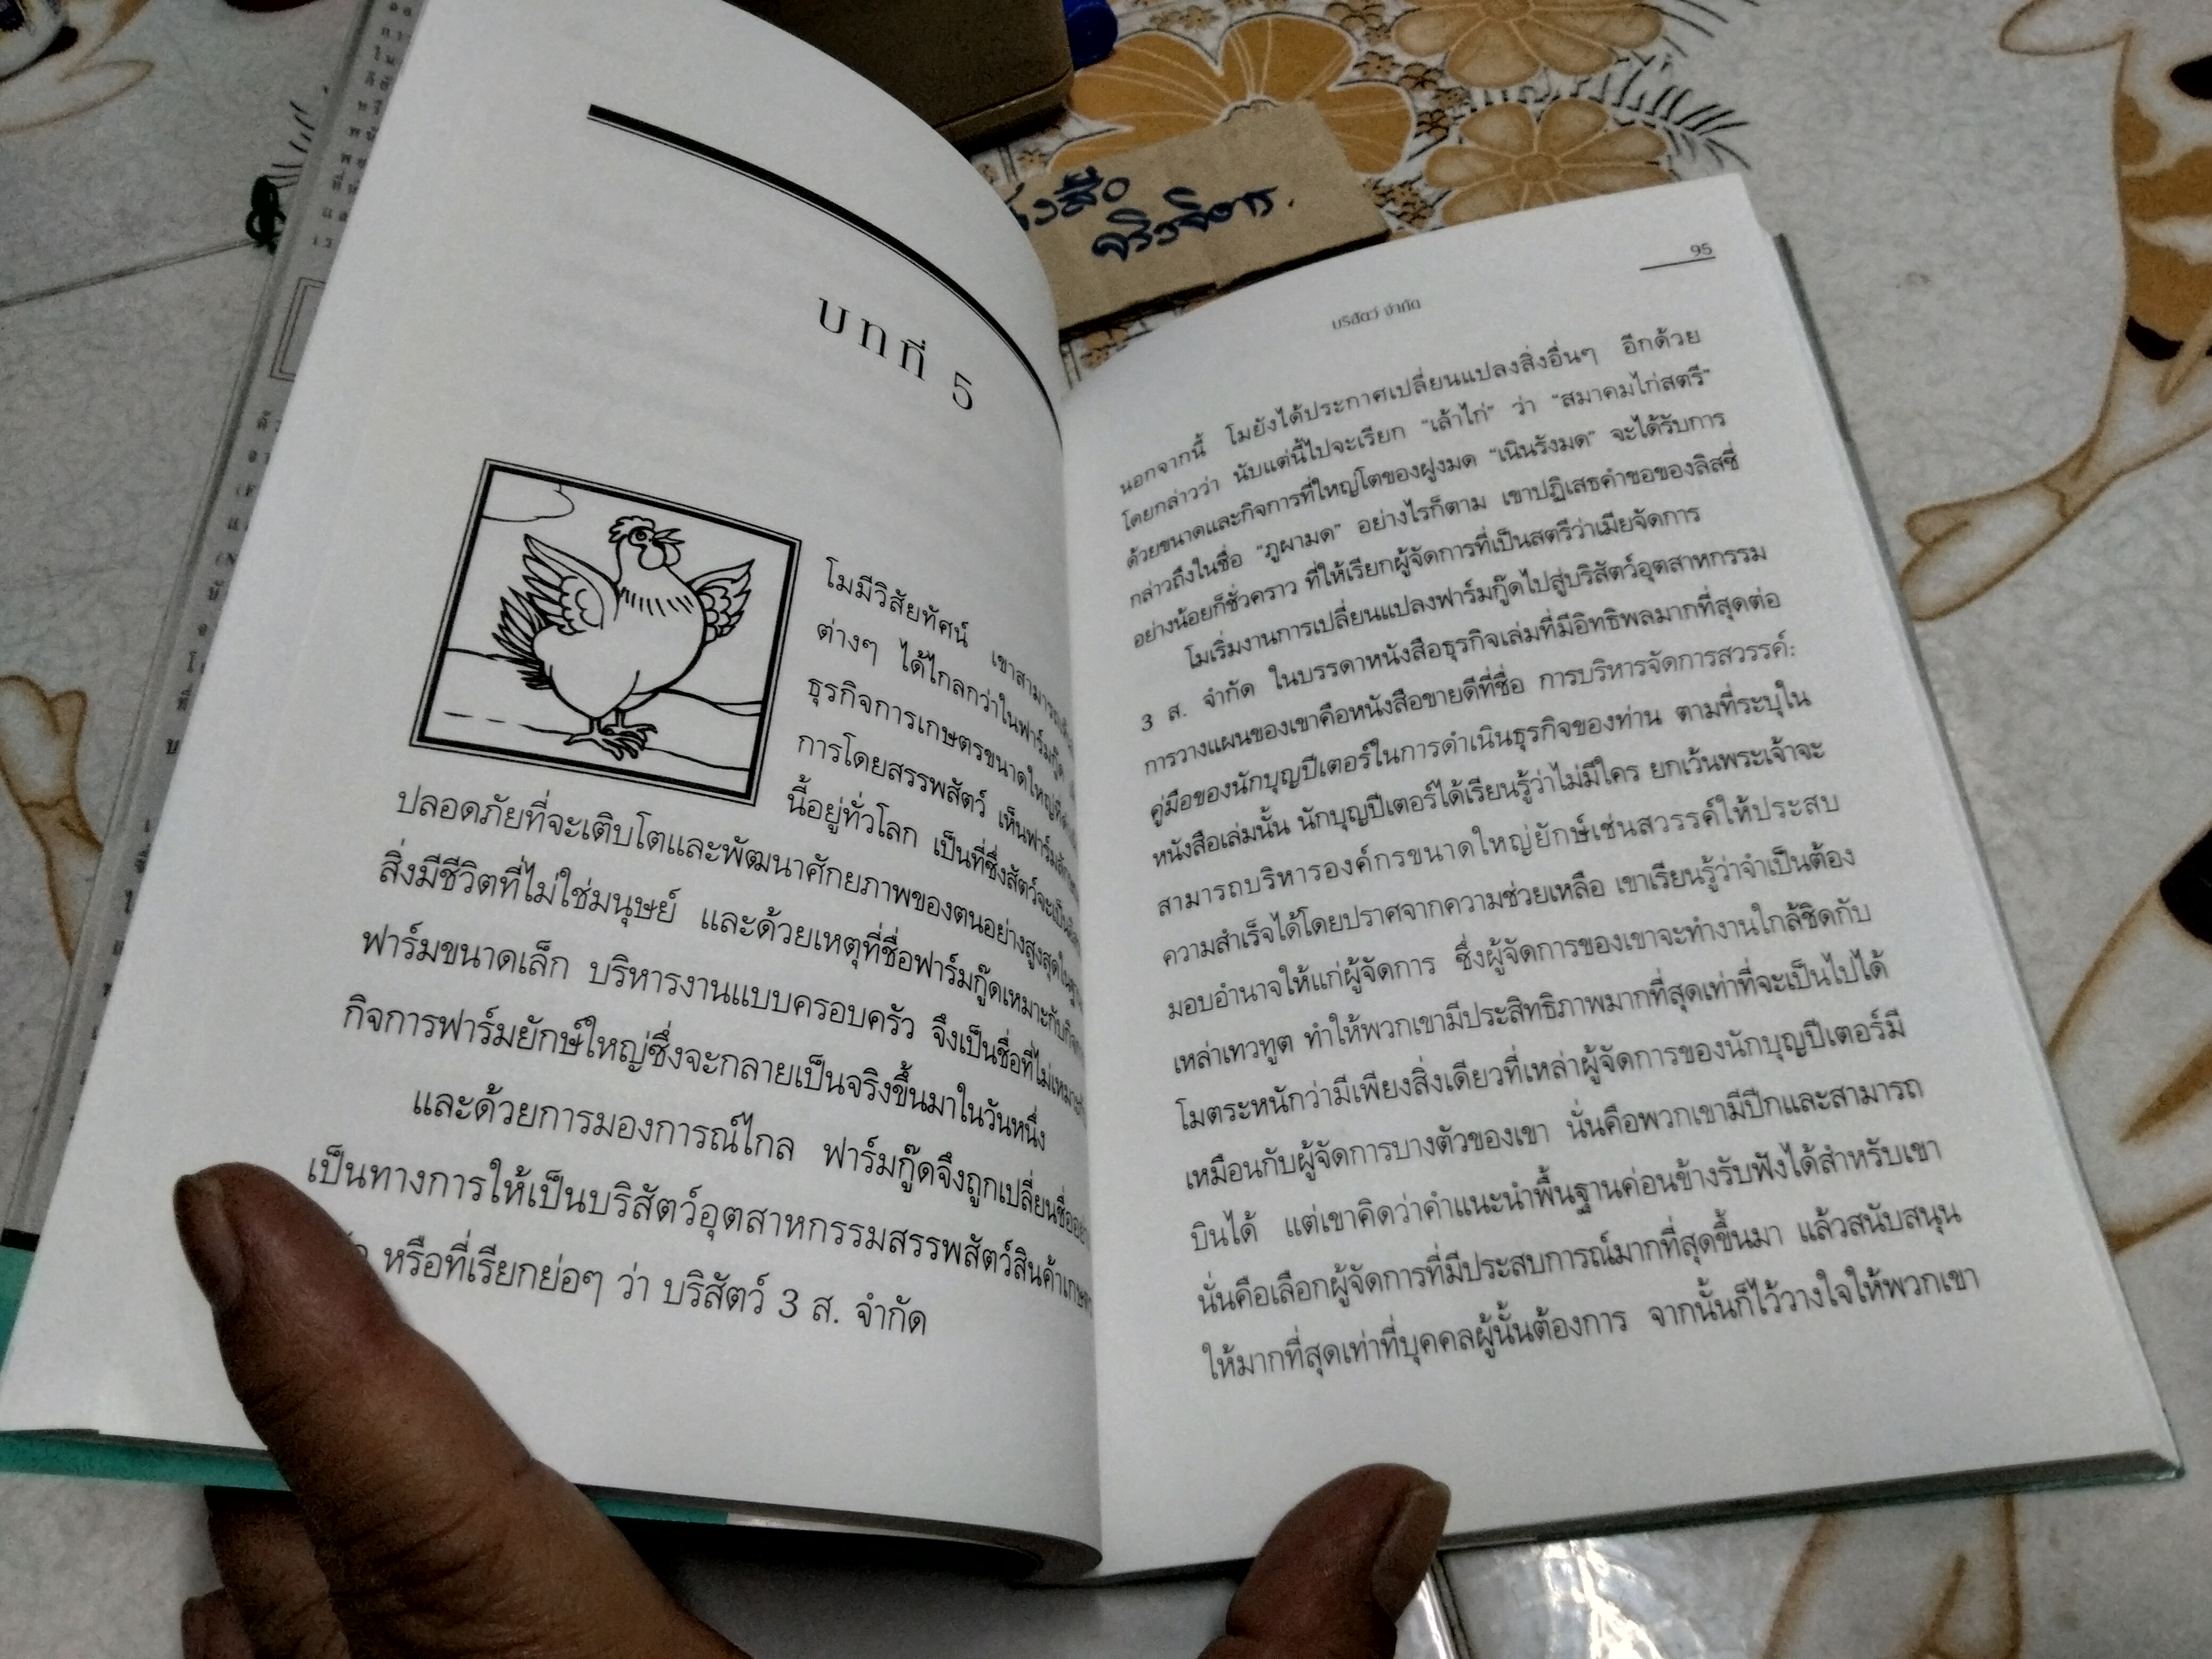 บทที่ 5
โมมีวิสัยทัศน์ เขาสามารถ
ต่างๆ ได้ไกลกว่าในฟาร์มกู๊ด
ธุรกิจการเกษตรขนาดใหญ่ที่
การโดยสรรพสัตว์ เห็นฟาร์ม
นี้อยู่ทั่วโลก เป็นที่ซึ่งสัตว์จะเป็น
ปลอดภัยที่จะเติบโตและพัฒนาศักยภาพของตนอย่างสูงสุดใน
สิ่งมีชีวิตที่ไม่ใช่มนุษย์ และด้วยเหตุที่ชื่อฟาร์มกู๊ดเหมาะกับ
ฟาร์มขนาดเล็ก บริหารงานแบบครอบครัว จึงเป็นชื่อที่ไม่เหมาะ
กิจการฟาร์มยักษ์ใหญ่ซึ่งจะกลายเป็นจริงขึ้นมาในวันหนึ่ง
และด้วยการมองการณ์ไกล ฟาร์มกู๊ดจึงถูกเปลี่ยนชื่อ
เป็นทางการให้เป็นบริสัตว์อุตสาหกรรมสรรพสัตว์สินค้าเกษตร
หรือที่เรียกย่อๆ ว่า บริสัตว์ 3 ส. จำกัด
จริงจิตร.
95
บริสัตว์ จำกัด
นอกจากนี้ โมยังได้ประกาศเปลี่ยนแปลงสิ่งอื่นๆ อีกด้วย
โดยกล่าวว่า นับแต่นี้ไปจะเรียก “เล้าไก่” ว่า “สมาคมไก่สตรี”
ด้วยขนาดและกิจการที่ใหญ่โตของฝูงมด “เนินรังมด” จะได้รับการ
กล่าวถึงในชื่อ “ภูผามด” อย่างไรก็ตาม เขาปฏิเสธคำขอของลิสซี่
อย่างน้อยก็ชั่วคราว ที่ให้เรียกผู้จัดการที่เป็นสตรีว่าเมียจัดการ
โมเริ่มงานการเปลี่ยนแปลงฟาร์มกู๊ดไปสู่บริสัตว์อุตสาหกรรม
3 ส. จำกัด ในบรรดาหนังสือธุรกิจเล่มที่มีอิทธิพลมากที่สุดต่อ
การวางแผนของเขาคือหนังสือขายดีที่ชื่อ การบริหารจัดการสวรรค์:
คู่มือของนักบุญปีเตอร์ในการดำเนินธุรกิจของท่าน ตามที่ระบุใน
หนังสือเล่มนั้น นักบุญปีเตอร์ได้เรียนรู้ว่าไม่มีใคร ยกเว้นพระเจ้าจะ
สามารถบริหารองค์กรขนาดใหญ่ยักษ์เช่นสวรรค์ให้ประสบ
ความสำเร็จได้โดยปราศจากความช่วยเหลือ เขาเรียนรู้ว่าจำเป็นต้อง
มอบอำนาจให้แก่ผู้จัดการ ซึ่งผู้จัดการของเขาจะทำงานใกล้ชิดกับ
เหล่าเทวทูต ทำให้พวกเขามีประสิทธิภาพมากที่สุดเท่าที่จะเป็นไปได้
โมตระหนักว่ามีเพียงสิ่งเดียวที่เหล่าผู้จัดการของนักบุญปีเตอร์มี
เหมือนกับผู้จัดการบางตัวของเขา นั่นคือพวกเขามีปีกและสามารถ
บินได้ แต่เขาคิดว่าคำแนะนำพื้นฐานค่อนข้างรับฟังได้สำหรับเขา
นั่นคือเลือกผู้จัดการที่มีประสบการณ์มากที่สุดขึ้นมา แล้วสนับสนุน
ให้มากที่สุดเท่าที่บุคคลผู้นั้นต้องการ จากนั้นก็ไว้วางใจให้พวกเขา